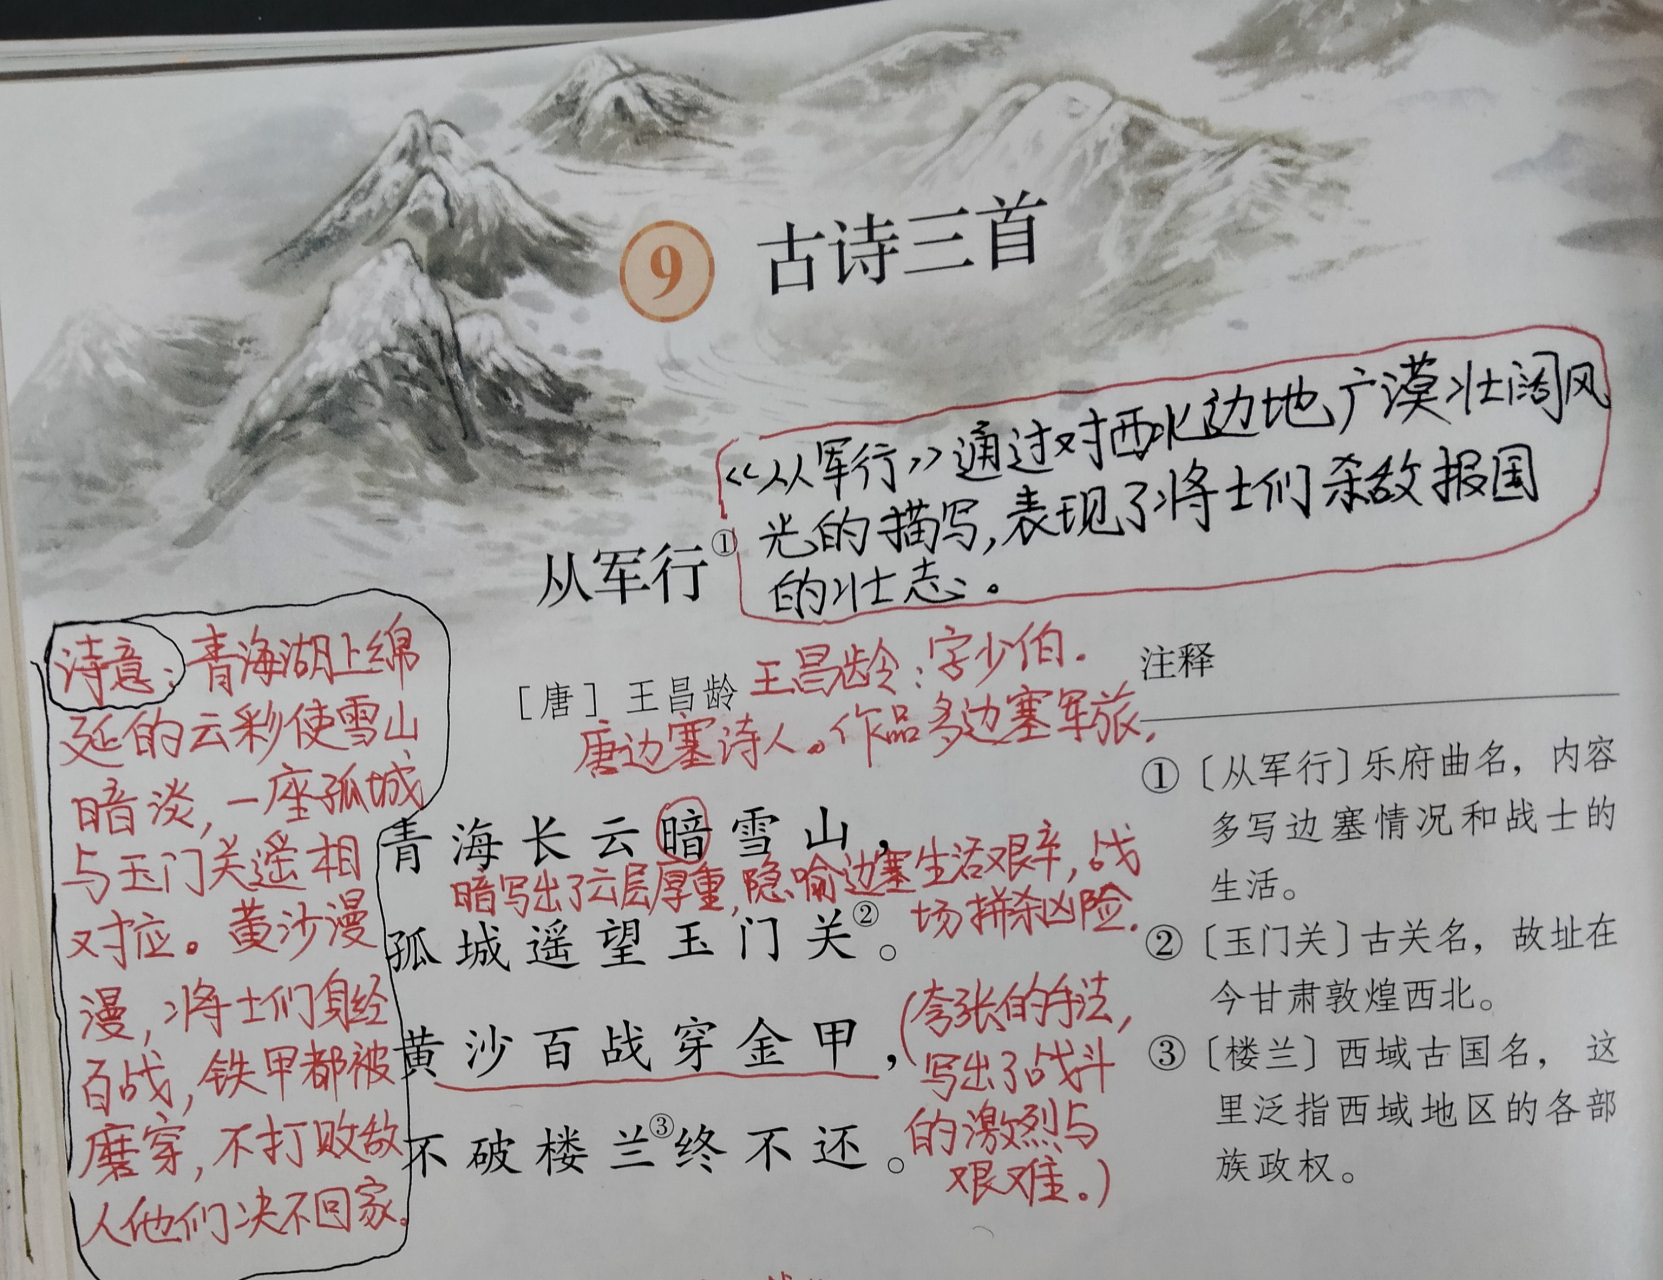 9 古诗三首
《从军行》通过对西北边地广漠壮阔风
光的描写,表现了将士们杀敌报国
的壮志。
从军行①
[唐] 王昌龄
王昌龄:字少伯.
唐边塞诗人。作品多边塞军旅,
诗意:青海湖上绵
延的云彩使雪山
暗淡,一座孤城
与玉门关遥相
对应。黄沙漫
漫,将士们身经
百战,铁甲都被
磨穿,不打败敌
人他们决不回家.
青海长云暗雪山,
暗写出了云层厚重,隐喻边塞生活艰辛,战
场拼杀凶险.
孤城遥望玉门关②。
黄沙百战穿金甲,
(夸张的手法,
写出了战斗
的激烈与
艰难。)
不破楼兰③终不还。
注释
①〔从军行〕乐府曲名,内容
多写边塞情况和战士的
生活。
②〔玉门关〕古关名,故址在
今甘肃敦煌西北。
③〔楼兰〕西域古国名,这
里泛指西域地区的各部
族政权。